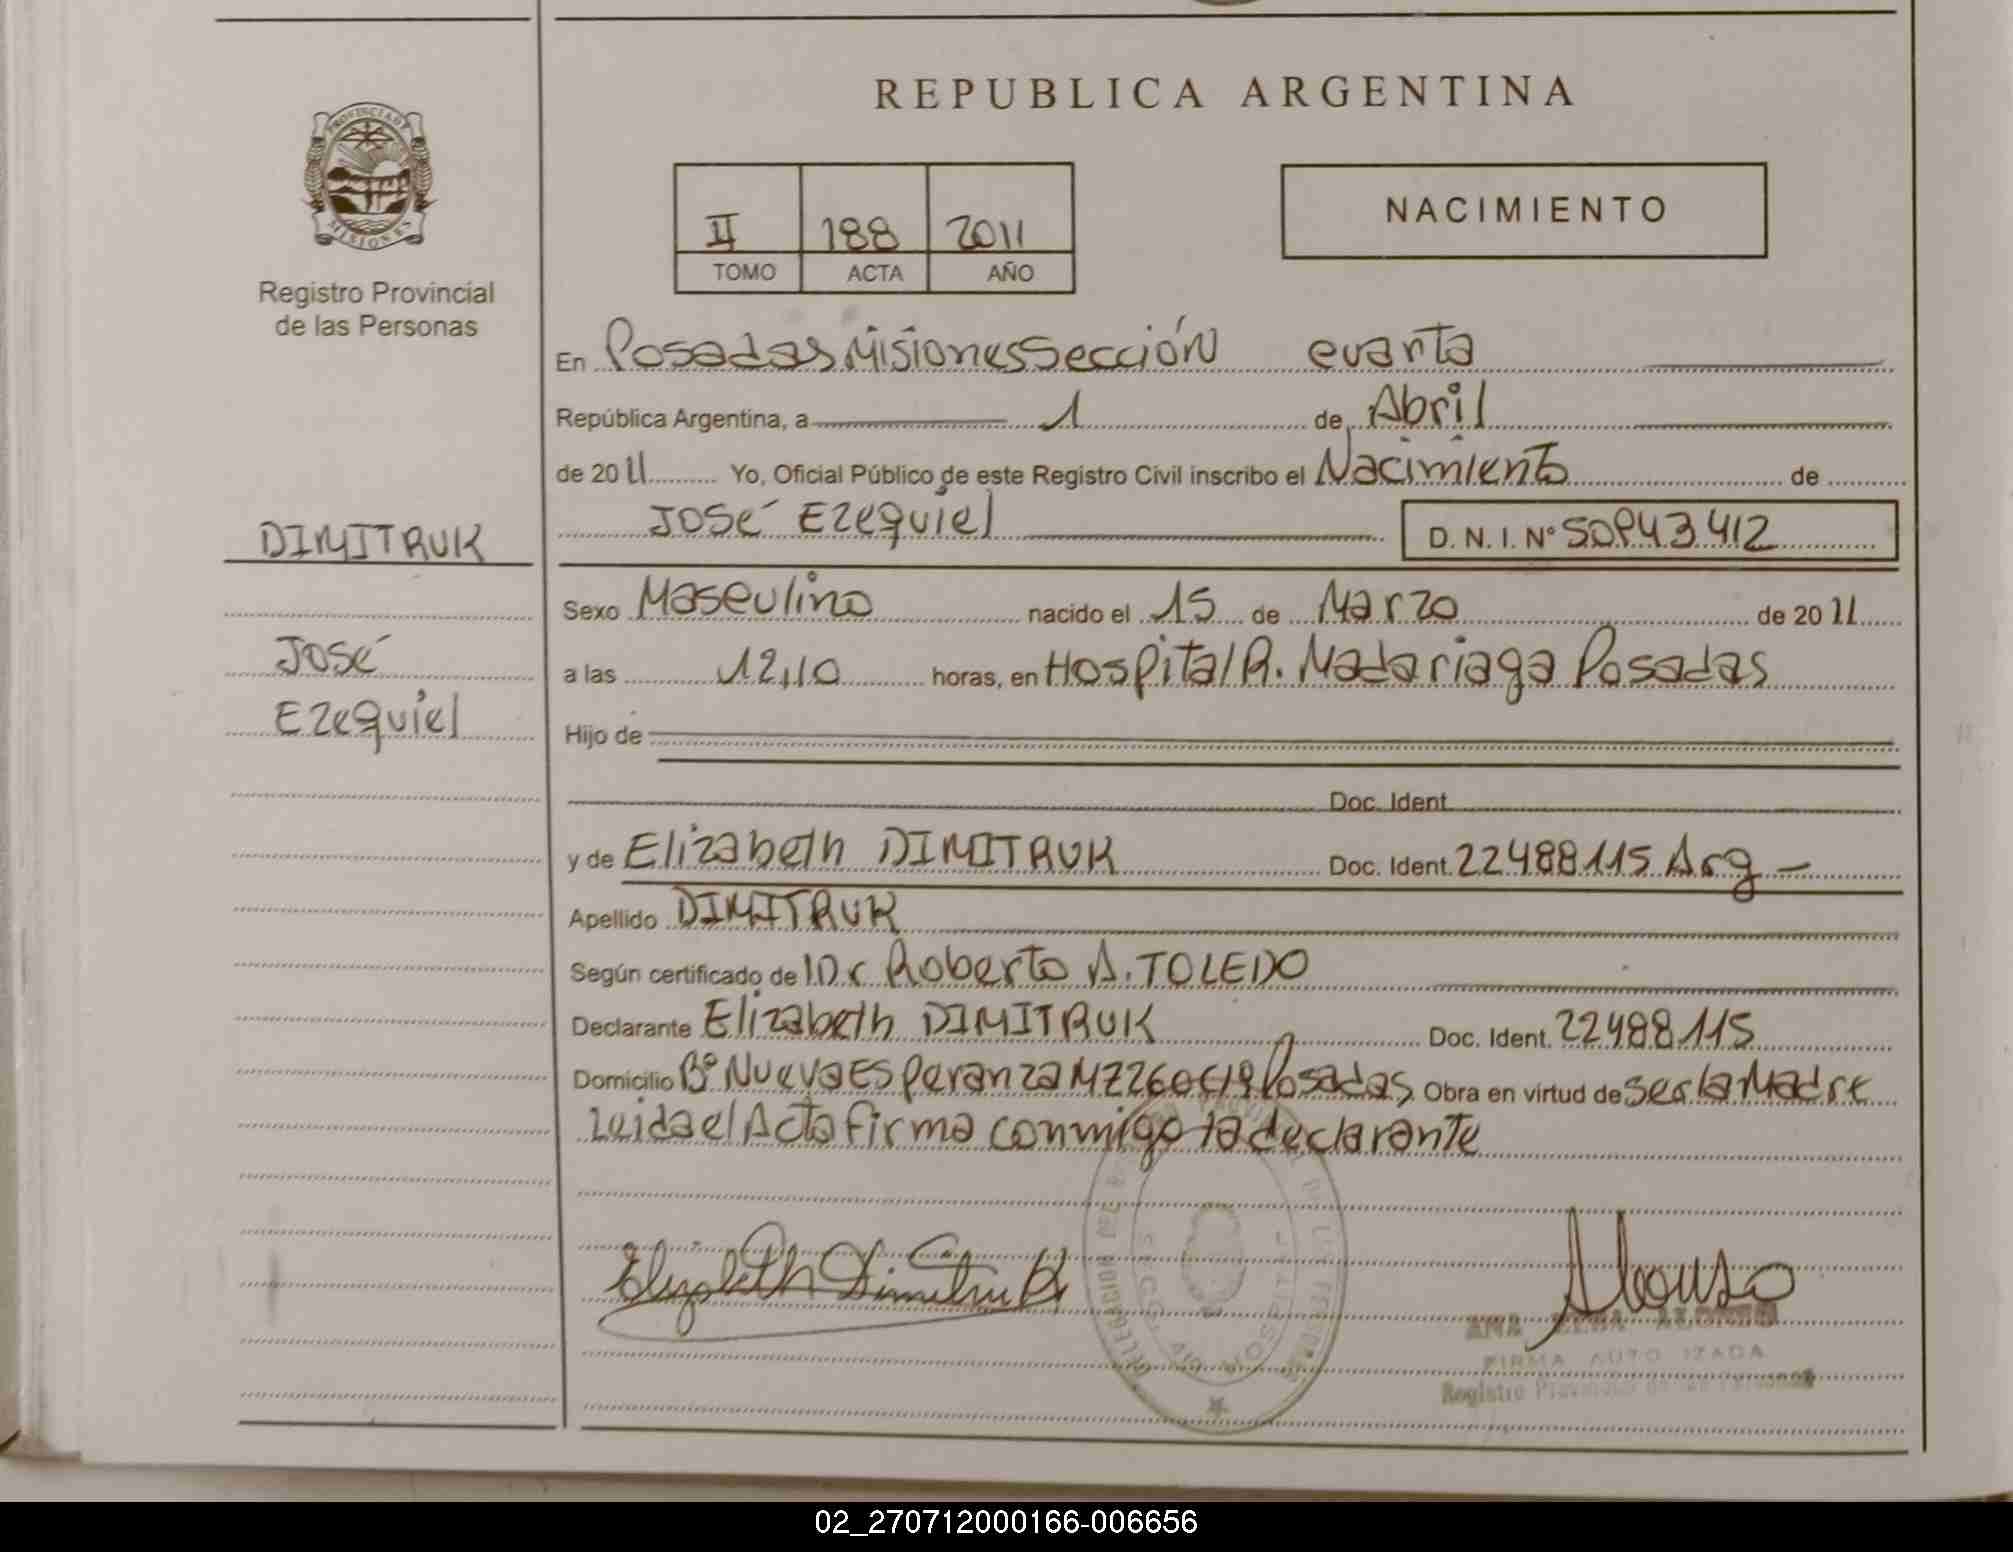 REPUBLICA ARGENTINA
PROVINCIA DE
MISIONES
Registro Provincial
de las Personas
II 188 2011
TOMO ACTA AÑO
NACIMIENTO
En Posadas Misiones Sección cuarta
República Argentina, a 1 de Abril
de 2011 Yo, Oficial Público de este Registro Civil inscribo el Nacimiento de
José Ezequiel D. N. I. Nº
DIMITRUK
José
Ezequiel
Sexo Masculino nacido el 15 de Marzo de 2011
a las 12,10 horas, en Hospital R. Madariaga Posadas
Hijo de
Doc. Ident.
y de Elizabeth DIMITRUK Doc. Ident. 22488115 Arg
Apellido DIMITRUK
Según certificado de Dr Roberto A. TOLEDO
Declarante Elizabeth DIMITRUK Doc. Ident. 22488115
Domicilio Bº Nueva Esperanza Mz 260 C 19 Posadas Obra en virtud de ser la Madre
Leida el Acta firma conmigo la declarante
Elizabeth Dimitruk
Alonso
ANA ALONSO
FIRMA AUTORIZADA
Registro Provincial de las Personas
02_270712000166-006656